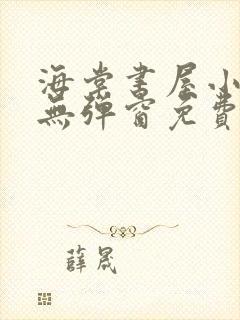 海棠書屋小
無彈窗免費
薛晟